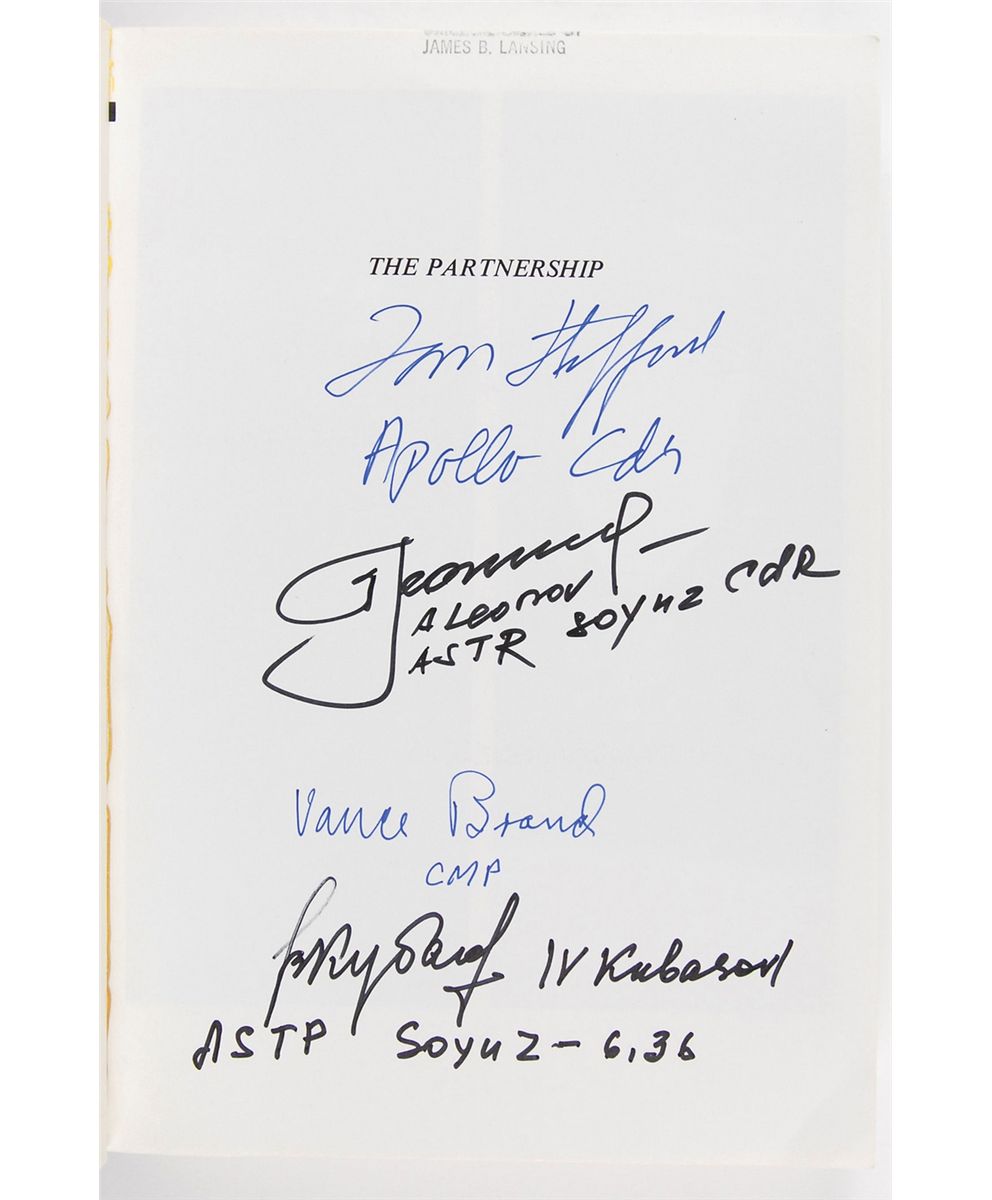 JAMES B. LANSING
THE PARTNERSHIP
Tom Stafford
Apollo Cdr
A Leonov
ASTR SOYUZ CdR
Vance Brand
CMP
VKubasov
ASTP Soyuz - 6,36